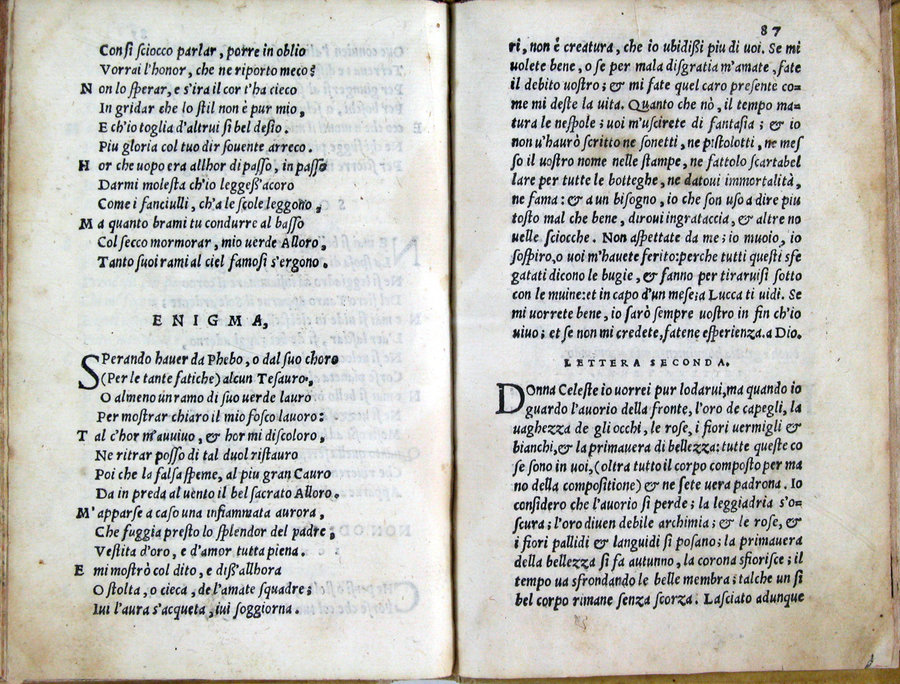 Con sì sciocco parlar, porre in oblio
Vorrai l'honor, che ne riporto meco?
Non lo sperar, e s'ira il cor t'ha cieco
In gridar che lo stil non è pur mio,
E ch'io toglia d'altrui sì bel desio.
Piu gloria col tuo dir souente arreco.
Hor che uopo era allhor di passo, in passo
Darmi molesta ch'io leggeß'acoro
Come i fanciulli, ch'a le scole leggono,
Ma quanto brami tu condurre al basso
Col secco mormorar, mio uerde Alloro,
Tanto suoi rami al ciel famosi s'ergono.
ENIGMA,
Sperando hauer da Phebo, o dal suo choro
(Per le tante fatiche) alcun Tesauro,
O almeno un ramo di suo uerde lauro
Per mostrar chiaro il mio fosco lauoro:
Tal c'hor m'auuiuo, & hor mi discoloro,
Ne ritrar posso di tal duol ristauro
Poi che la falsa speme, al piu gran Cauro
Da in preda al uento il bel sacrato Alloro.
M'apparse a caso una infiammata aurora,
Che fuggia presto lo splendor del padre,
Vestita d'oro, e d'amor tutta piena.
E mi mostrò col dito, e diß'allhora
O stolta, o cieca, de l'amate squadre;
Iui l'aura s'acqueta, iui soggiorna.
87
ri, non è creatura, che io ubidißi piu di uoi. Se mi
uolete bene, o se per mala disgratia m'amate, fate
il debito uostro; & mi fate quel caro presente co-
me mi deste la uita. Quanto che nò, il tempo ma-
tura le nespole; uoi m'uscirete di fantasia; & io
non u'haurò scritto ne sonetti, ne pistolotti, ne mes
so il uostro nome nelle stampe, ne fattolo scartabel
lare per tutte le botteghe, ne datoui immortalità,
ne fama: & a un bisogno, io che son uso a dire piu
tosto mal che bene, diroui ingrataccia, & altre no
uelle sciocche. Non aspettate da me; io muoio, io
sospiro, o uoi m'hauete ferito: perche tutti questi sfe
gatati dicono le bugie, & fanno per tiraruisi sotto
con le muine: et in capo d'un mese; a Lucca ti uidi. Se
mi uorrete bene, io sarò sempre uostro in fin ch'io
uiuo; et se non mi credete, fatene esperienza. a Dio.
LETTERA SECONDA.
Donna Celeste io uorrei pur lodarui, ma quando io
guardo l'auorio della fronte, l'oro de capegli, la
uaghezza de gli occhi, le rose, i fiori uermigli &
bianchi, & la primauera di bellezza: tutte queste co
se sono in uoi, (oltra tutto il corpo composto per ma
no della compositione) & ne sete uera padrona. Io
considero che l'auorio si perde; la leggiadria s'o-
scura; l'oro diuen debile archimia; & le rose, &
i fiori pallidi & languidi si posano; la primauera
della bellezza si fa autunno, la corona sfiorisce; il
tempo ua sfrondando le belle membra; talche un sì
bel corpo rimane senza scorza. Lasciato adunque